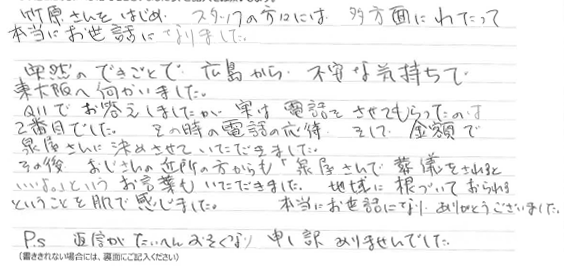 竹原さんをはじめ、スタッフの方々には 多方面にわたって
本当にお世話になりました。
突然のできごとで 広島から 不安な気持ちで
東大阪へ向かいました。
Q11でお答えしましたが、実は 電話をさせてもらったのは
2番目でした。 その時の電話の応待 そして 金額で
泉屋さんに決めさせていただきました。
その後 おじさんの近所の方からも「泉屋さんで 葬儀をされると
いいよ。」という お言葉もいただきました。 地域に 根づいておられる
ということを肌で感じました。 本当にお世話になり ありがとうございました。
P.s 返信がたいへんおそくなり 申し訳ありませんでした。
(書ききれない場合には、裏面にご記入ください)